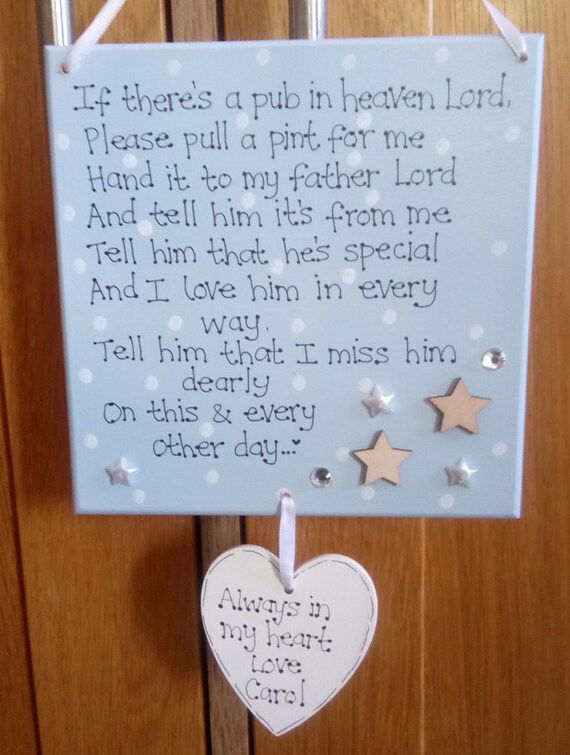 If there's a pub in heaven Lord,
Please pull a pint for me
Hand it to my father Lord
And tell him it's from me
Tell him that he's special
And I love him in every
way.
Tell him that I miss him
dearly
On this & every
other day...
Always in
my heart
Love
Carol